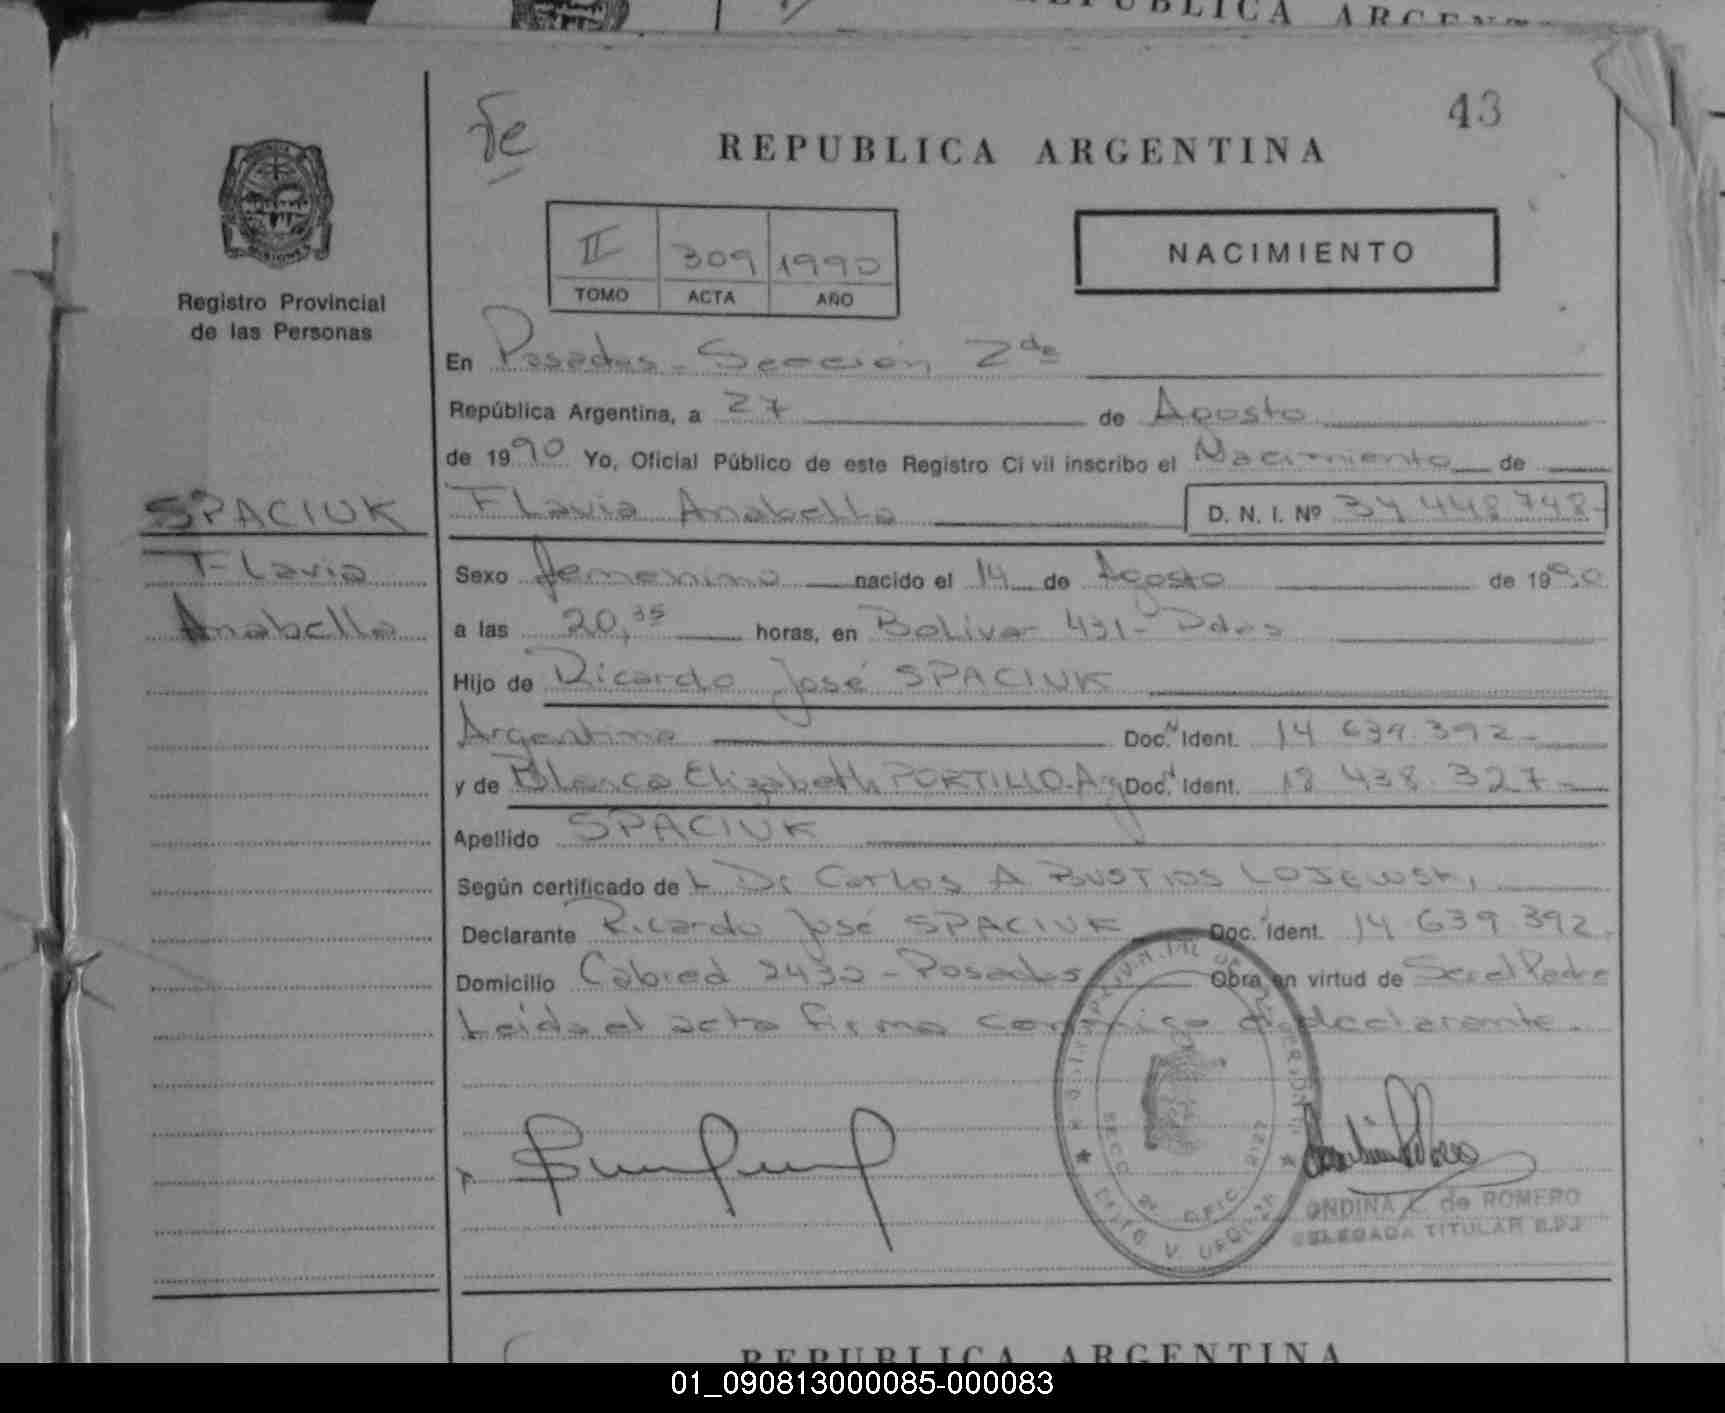 REPUBLICA ARGENT
43
fe
REPUBLICA ARGENTINA
II 309 1990
TOMO ACTA AÑO
NACIMIENTO
Registro Provincial
de las Personas
En Posadas - Sección 2da
República Argentina, a 27 de Agosto
de 1990 Yo, Oficial Público de este Registro Civil inscribo el Nacimiento de
SPACIUK
Flavia Anabella D. N. I. Nº 34 448 748-
Flavia
Anabella
Sexo femenino nacido el 14 de Agosto de 1990
a las 20,35 horas, en Bolivar 431- Pdas
Hijo de Ricardo José SPACIUK
Argentino Doc. Ident. 14 639.392-
y de Blanca Elizabeth PORTILLO-Arg Doc. Ident. 18 438.327-
Apellido SPACIUK
Según certificado de L Dr Carlos A BUSTIOS LOJEWSKI
Declarante Ricardo José SPACIUK Doc. Ident. 14 639 392.
Domicilio Cabred 2430 - Posadas Obra en virtud de Ser el Padre
Leida el acta firma conmigo el declarante.
SECC 2a OFIC
V. URQUIZA
ONDINA L. de ROMERO
DELEGADA TITULAR R.P.J
REPUBLICA ARGENTINA
01_090813000085-000083